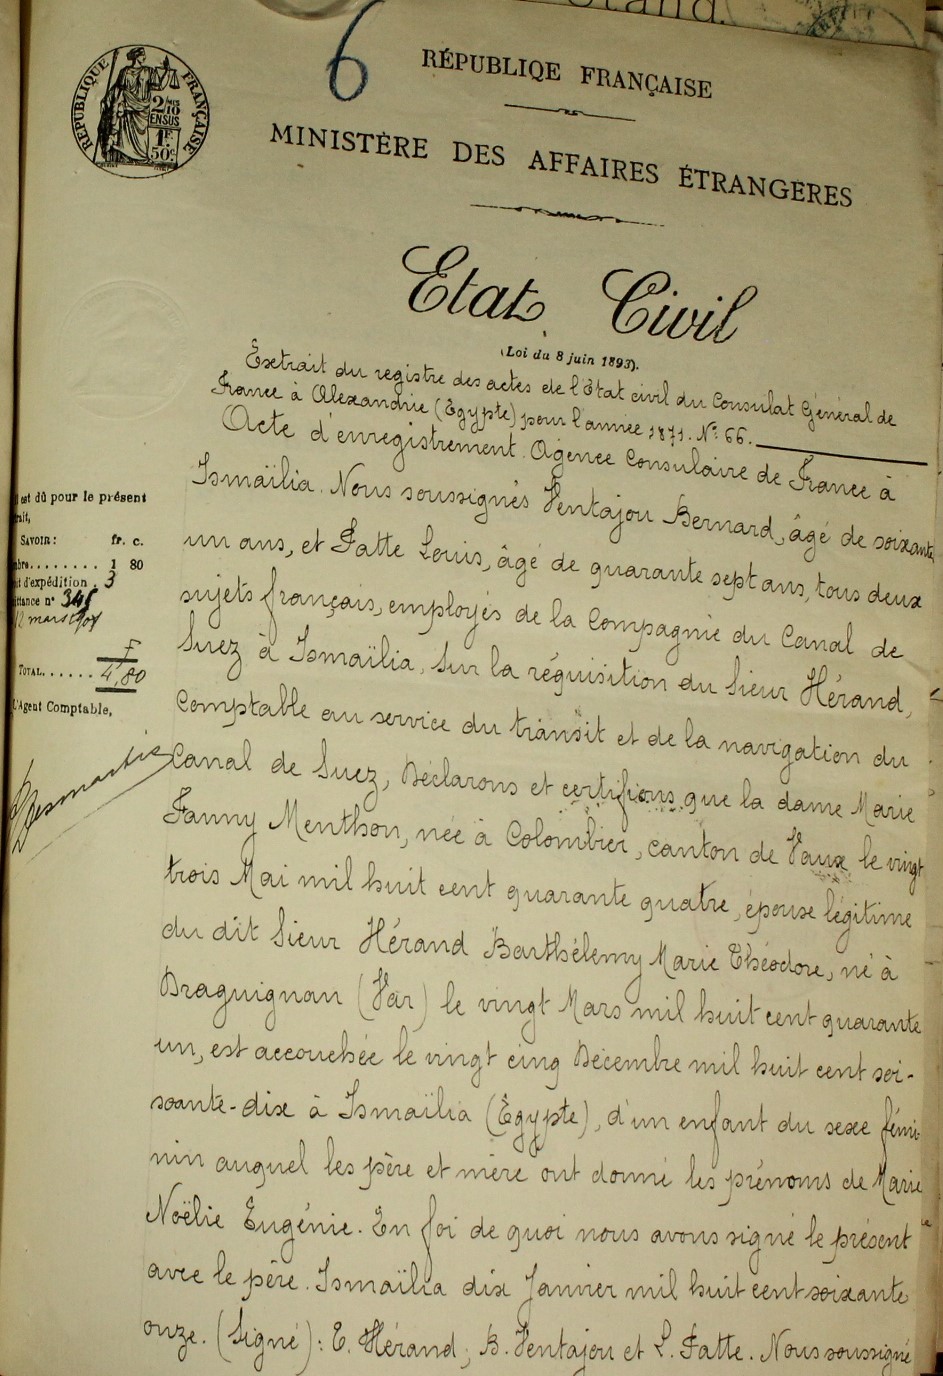 6
RÉPUBLIQE FRANÇAISE
MINISTÈRE DES AFFAIRES ÉTRANGÈRES
RÉPUBLIQUE FRANÇAISE
2/10
EN SUS
1F.
50c
Etat Civil
(Loi du 8 juin 1893).
Extrait du registre des actes de l'Etat civil du Consulat Général de
France à Alexandrie (Egypte) pour l'année 1871. No: 66.
Acte d'enregistrement. Agence Consulaire de France à
Ismaïlia. Nous soussignés Ventajou Bernard, âgé de soixante
un ans, et Fatte Louis, âgé de quarante sept ans, tous deux
sujets français, employés de la Compagnie du Canal de
Suez à Ismaïlia, Sur la réquisition du Sieur Hérand,
Comptable au service du transit et de la navigation du
Canal de Suez, Déclarons et certifions que la dame Marie
Fanny Menthon, née à Colombier, canton de Vaux le vingt
trois Mai mil huit cent quarante quatre, épouse légitime
du dit Sieur Hérand Barthélemy Marie Théodore, né à
Draguignan (Var) le vingt Mars mil huit cent quarante
un, est accouchée le vingt cinq Décembre mil huit cent soi-
xante-dix à Ismaïlia (Egypte), d'un enfant du sexe fémi-
nin auquel les père et mère ont donné les prénoms de Marie
Noëlie Eugénie. En foi de quoi nous avons signé le présent
avec le père. Ismaïlia dix Janvier mil huit cent soixante
onze. (Signé): T. Hérand; B. Ventajou et L. Fatte. Nous soussigné
est dû pour le présent
rait,
SAVOIR: fr. c.
mbre........ 1 80
it d'expédition . 3
ittance n° 345
12 mars
TOTAL...... 4,80
L'Agent Comptable,